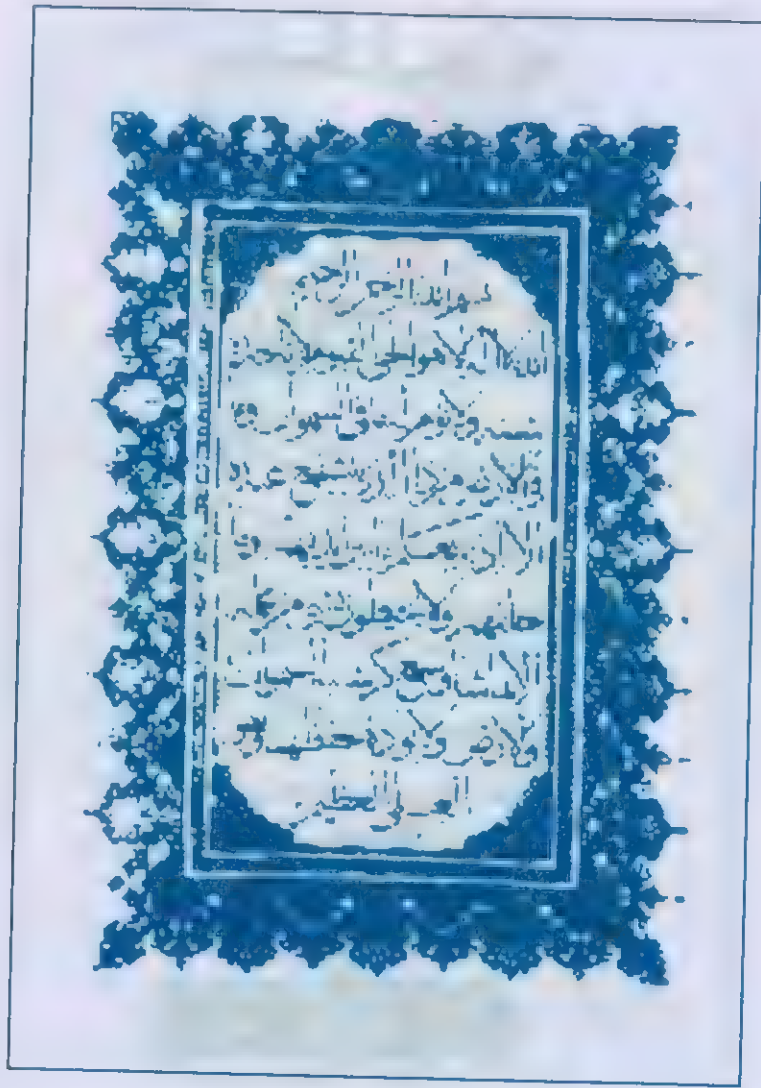 بسم الله الرحمن الرحيم
الله لا اله الا هو الحي القيوم لا تأخذه
سنة ولا نوم له ما في السموات وما في
الارض من ذا الذي يشفع عنده
الا باذنه يعلم ما بين ايديهم وما
خلفهم ولا يحيطون بشيء من علمه
الا بما شاء وسع كرسيه السموات
والارض ولا يؤده حفظهما وهو
العلي العظيم